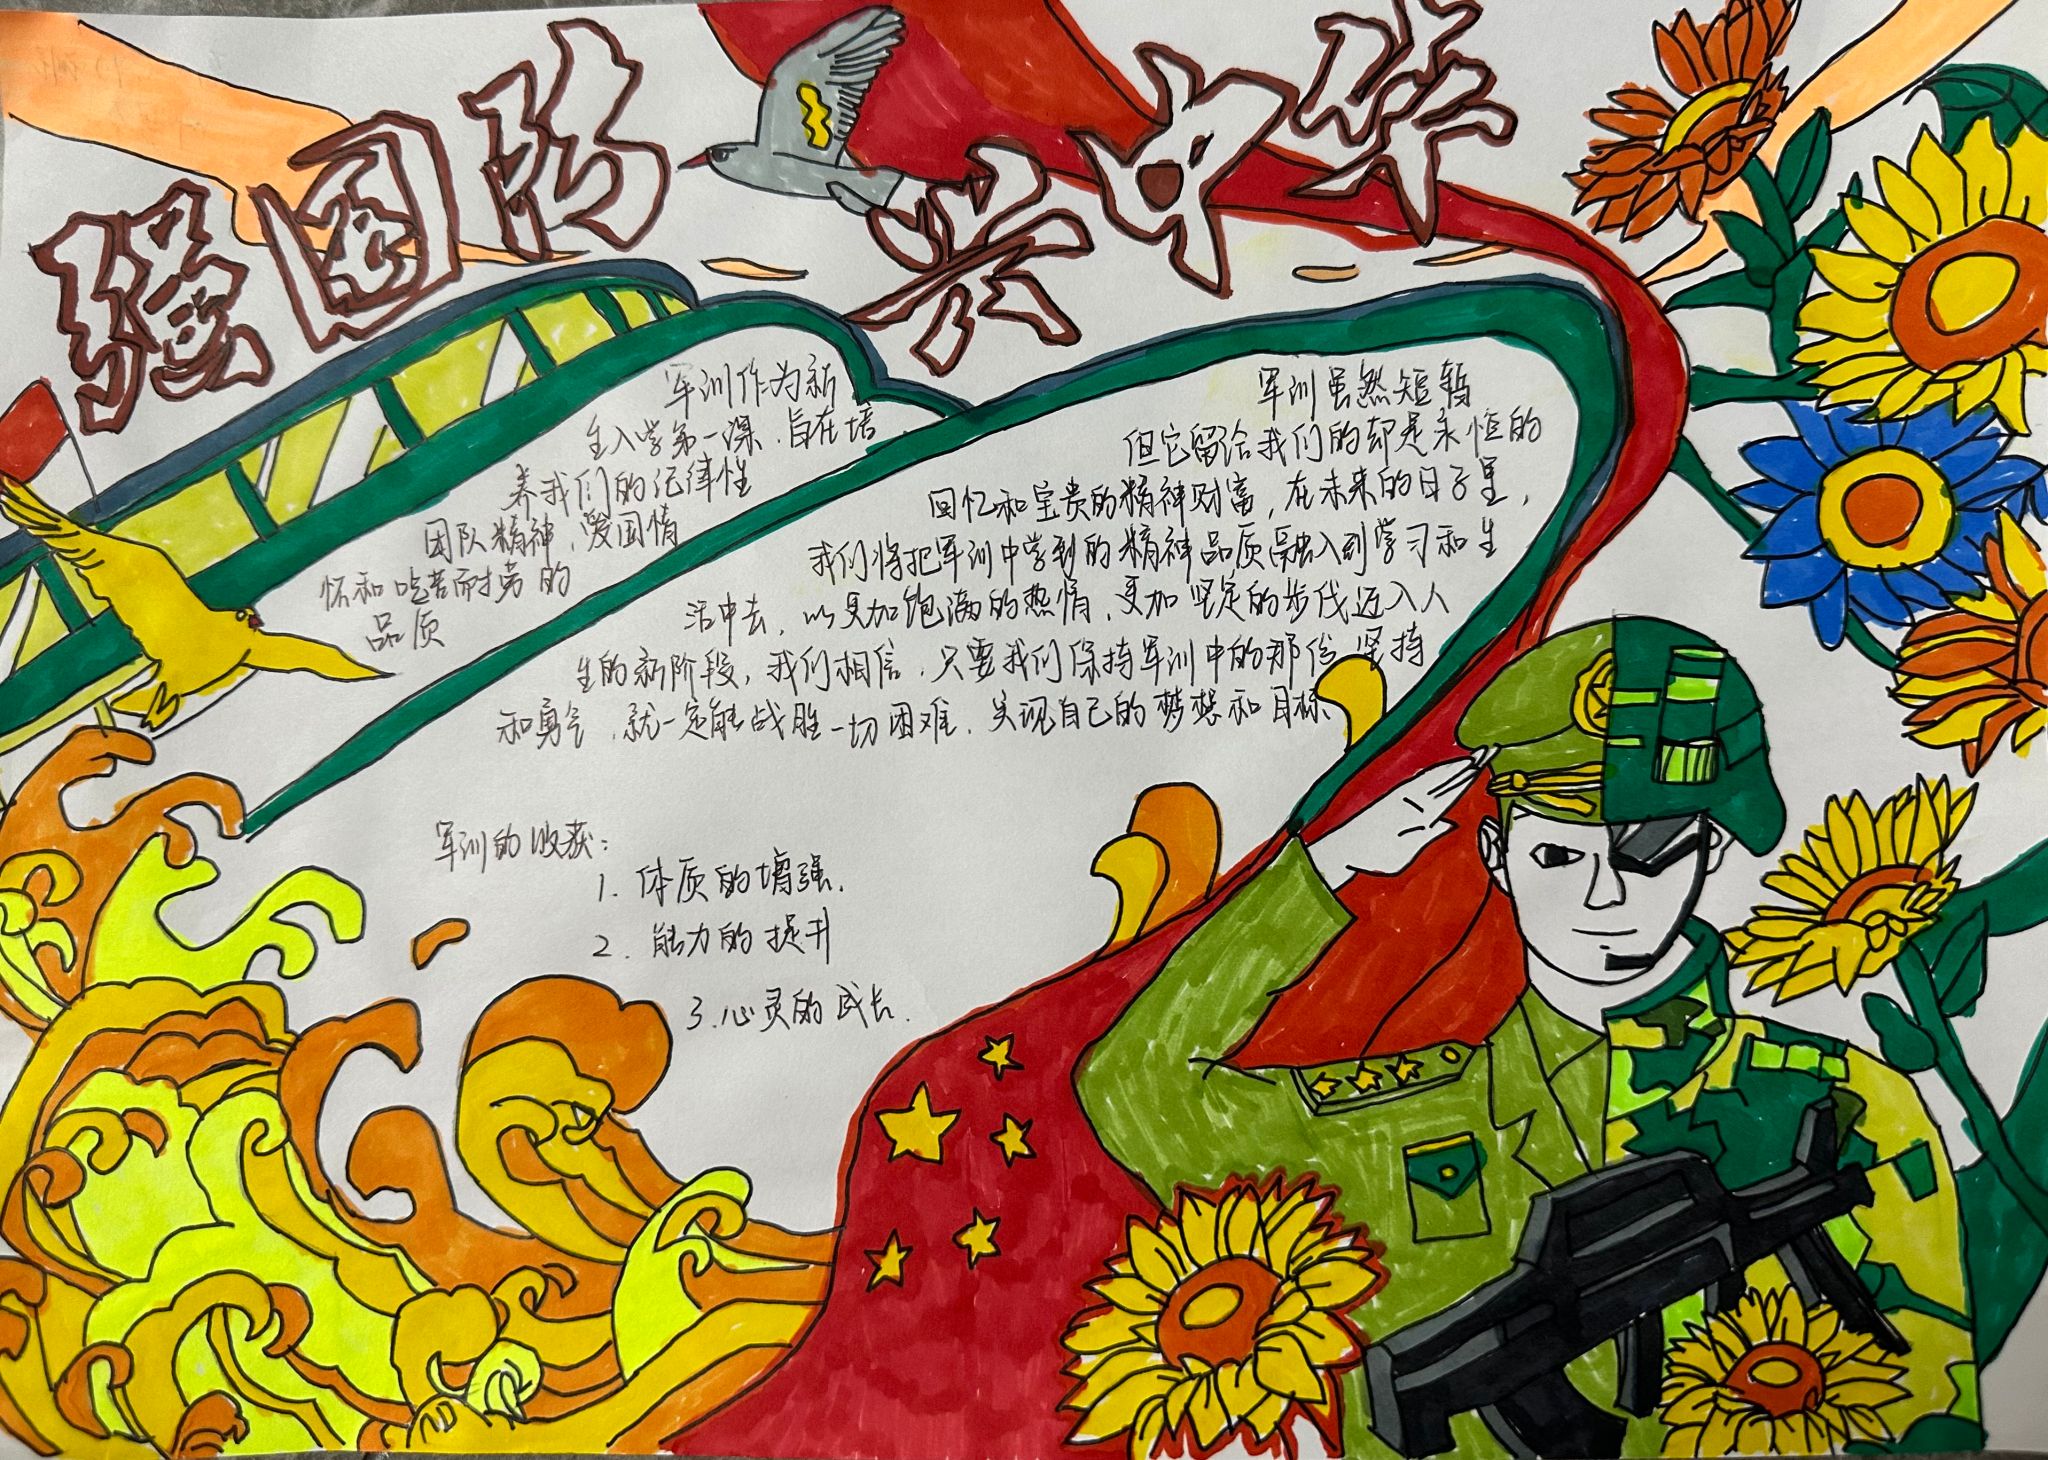 强国防
兴中华
军训作为新
生入学第一课、旨在培
养我们的纪律性
团队精神、爱国情
怀和吃苦而扌劳的
品质
军训虽然短暂
但它留给我们的却是永恒的
回忆和宝贵的精神财富，在未来的日子里，
我们将把军训中学到的精神品质融入到学习和生
活中去，以更加饱满的热情、更加坚定的步伐迈入人
生的新阶段，我们相信，只要我们保持军训中的那份坚持
和勇气，就一定能战胜一切困难、实现自己的梦想和目标
军训的收获：
1. 体质的增强.
2. 能力的提升
3. 心灵的成长.